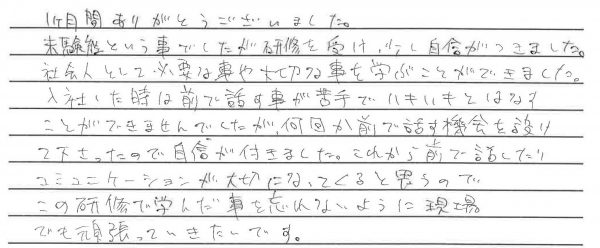 1ヶ月間ありがとうございました。
未験験という事でしたが研修を受け、少し自信がつきました。
社会人として必要な事や大切な事を学ぶことができました。
入社した時は前で話す事が苦手でハキハキとはなす
ことができませんでしたが、何回か前で話す機会を設け
て下さったので自信が付きました。これから前で話したり
コミュニケーションが大切になってくると思うので
この研修で学んだ事を忘れないように現場
でも頑張っていきたいです。